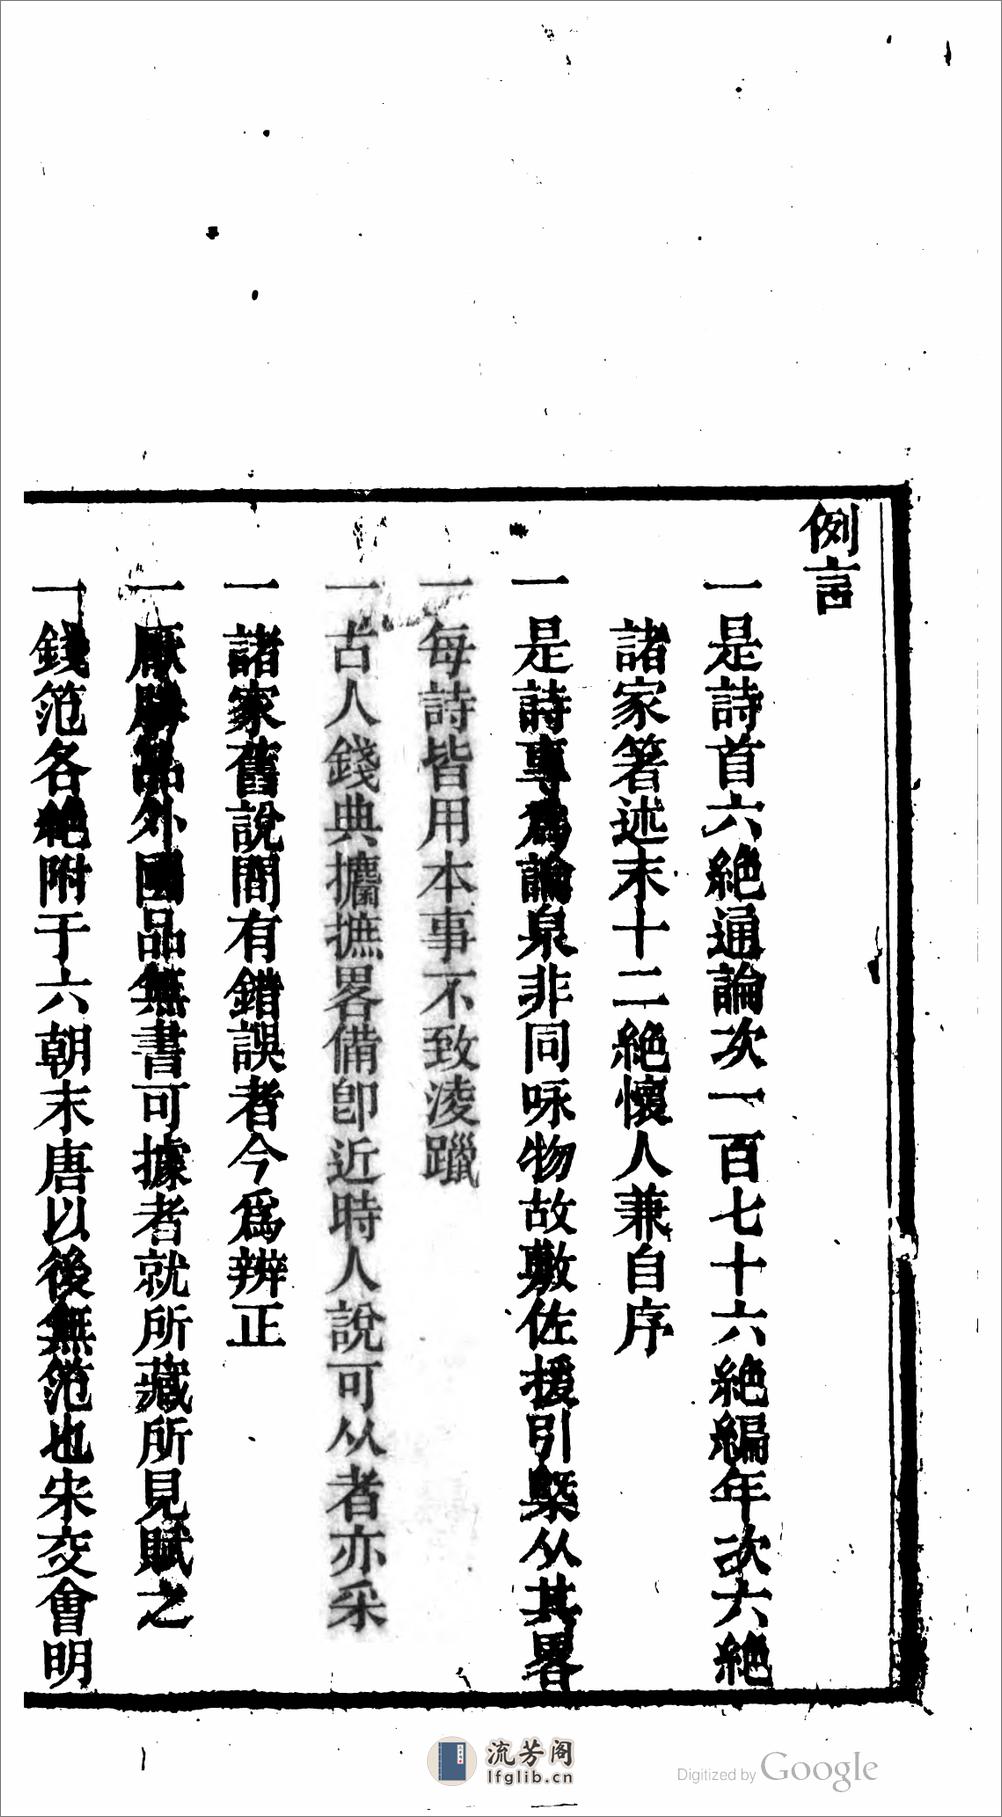 例言
一是詩首六絶通論次一百七十六絶編年次六絶
諸家箸述末十二絶懷人兼自序
一是詩專爲論泉非同咏物故敷佐援引槩从其畧
一每詩皆用本事不致淩躐
一古人錢典攟摭畧備卽近時人說可从者亦采
一諸家舊說間有錯誤者今爲辨正
一厭勝品外國品無書可據者就所藏所見賦之
一錢笵各絶附于六朝末唐以後無笵也宋交會明
流芳阁
lfglib.cn
Digitized by Google